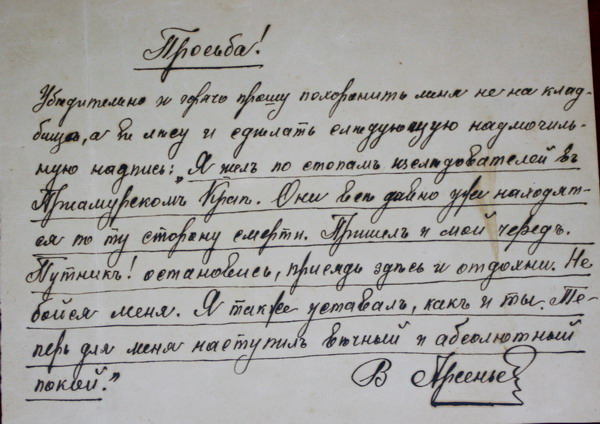 Просьба!
Убѣдительно и горячо прошу похоронить меня не на клад-
бищѣ, а въ лѣсу и сдѣлать слѣдующую надмогиль-
ную надпись: „Я шелъ по стопамъ изслѣдователей въ
Приамурскомъ Краѣ. Они всѣ давно уже находят-
ся по ту сторону смерти. Пришелъ и мой чередъ.
Путникъ! остановись, присядь здѣсь и отдохни. Не
бойся меня. Я также уставалъ, какъ и ты. Те-
перь для меня наступилъ вѣчный и абсолютный
покой."
В Арсеньев